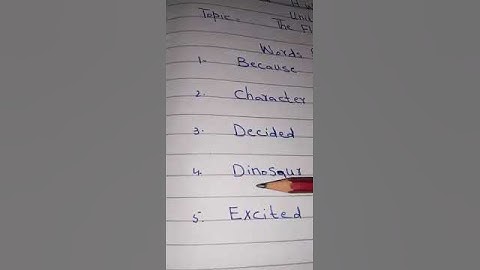 Topic. The
Words
1. Because
2. Character
3. Decided
4. Dinosaur
5. Excited